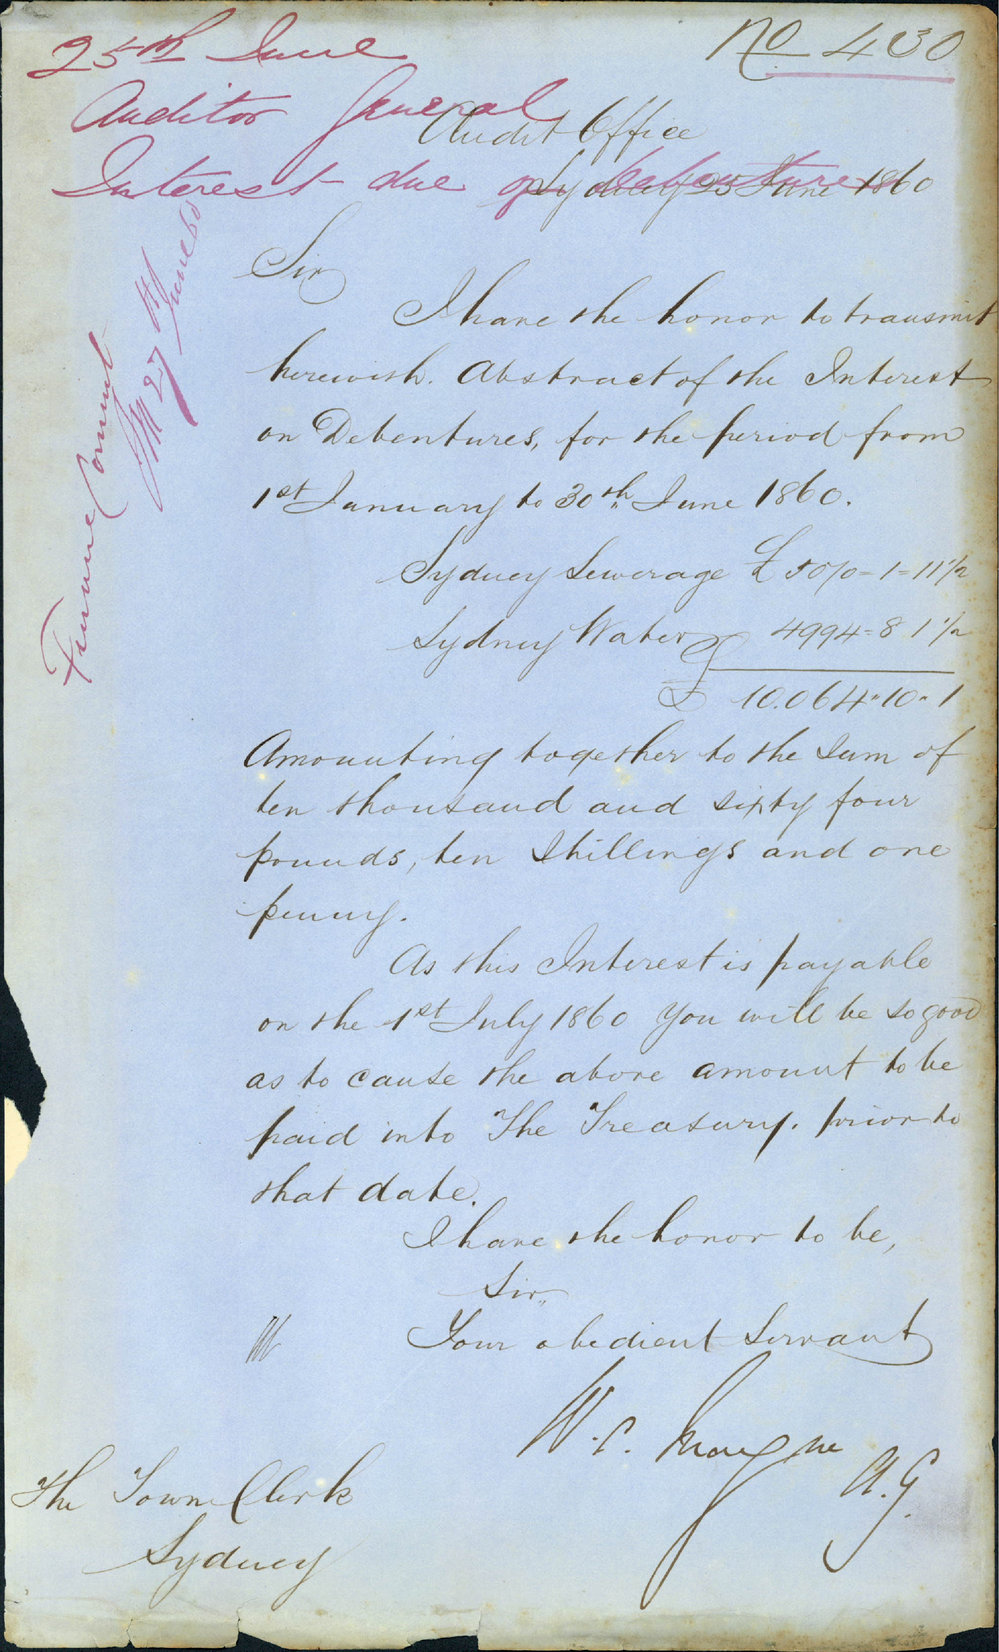 No 430
25th June
Auditor General
Interest due on Debentures
Audit Office
Sydney 25 June 1860
Finance Commit
27 June 60
Sir
I have the honor to transmit
herewith. Abstract of the Interest
on Debentures, for the period from
1st January to 30th June 1860.
Sydney Sewerage £ 5070=1=11½
Sydney Water 4994=8 1½
£ 10.064"10"1
Amounting together to the Sum of
ten thousand and sixty four
pounds, ten Shillings and one
penny.
As this Interest is payable
on the 1st July 1860 You will be so good
as to cause the above amount to be
paid into The Treasury. prior to
that date.
I have the honor to be,
Sir,,
Your obedient Servant
W. C. Mayne
A.G.
The Town Clerk
Sydney